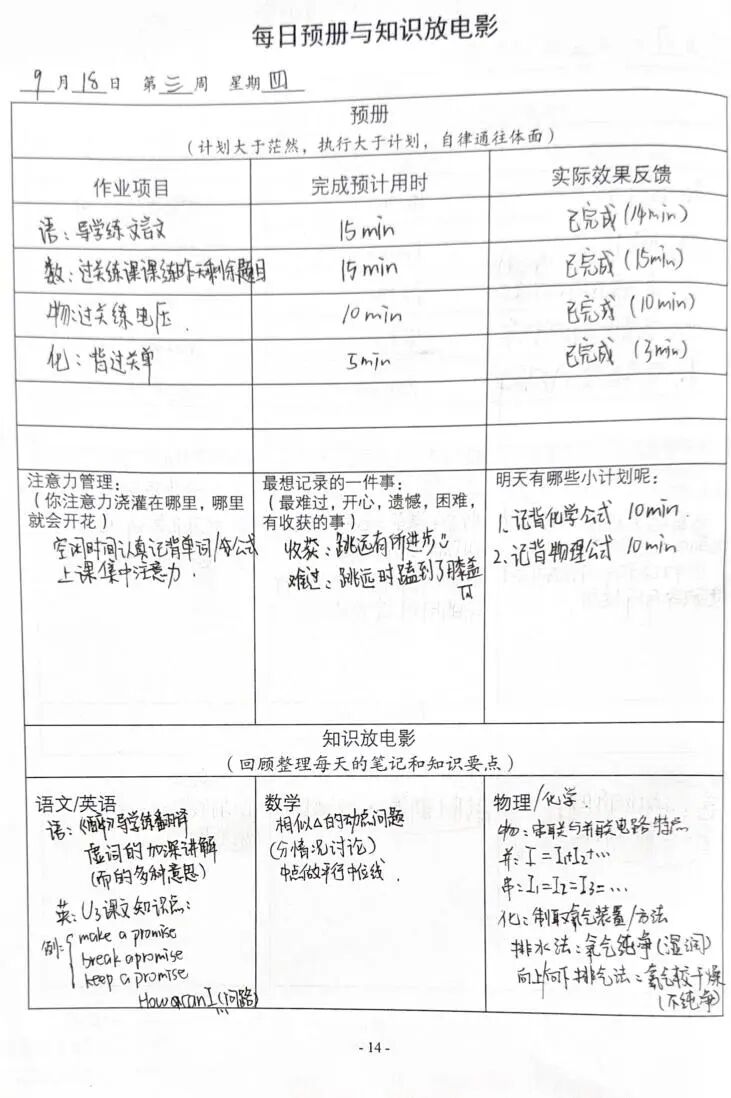 每日预册与知识放电影
9月18日 第三周 星期四
预册
（计划大于茫然，执行大于计划，自律通往体面）
作业项目 完成预计用时 实际效果反馈
语：导学练文言文 15min 已完成（14min）
数：过关练课课练昨天剩余题目 15min 已完成（15min）
物：过关练电压. 10min 已完成（10min）
化：背过关单 5min 已完成（3min）
注意力管理：
（你注意力浇灌在哪里，哪里
就会开花）
空闲时间认真记背单词/
上课集中注意力.
最想记录的一件事：
（最难过，开心，遗憾，困难，
有收获的事）
收获：跳远有所进步
难过：跳远时磕到了膝盖
明天有哪些小计划呢：
1.记背化学公式 10min.
2.记背物理公式 10min
知识放电影
（回顾整理每天的笔记和知识要点）
语文/英语
语：导学练翻译
虚词的加深讲解
（而的多种意思）
英：U3课文知识点：
例：make a promise
break a promise
keep a promise
How can I（问路）
数学
相似△的动点问题
（分情况讨论）
中点做平行中位线.
物理/化学
物：串联与并联电路特点
并：I=I1+I2+…
串：I1=I2=I3=…
化：制取氧气装置/方法
排水法：氧气纯净（湿润）
向上/向下排气法：氧气较干燥
（不纯净）
- 14 -